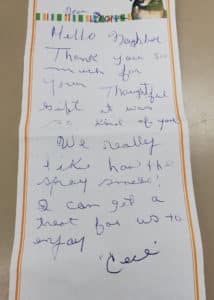 Hello Neighbor
Thank you so
much for
your Thoughtful
gift it was
so kind of you
We really
like how the
spray smells!
I can get a
treat for us to
enjoy
"Cece"